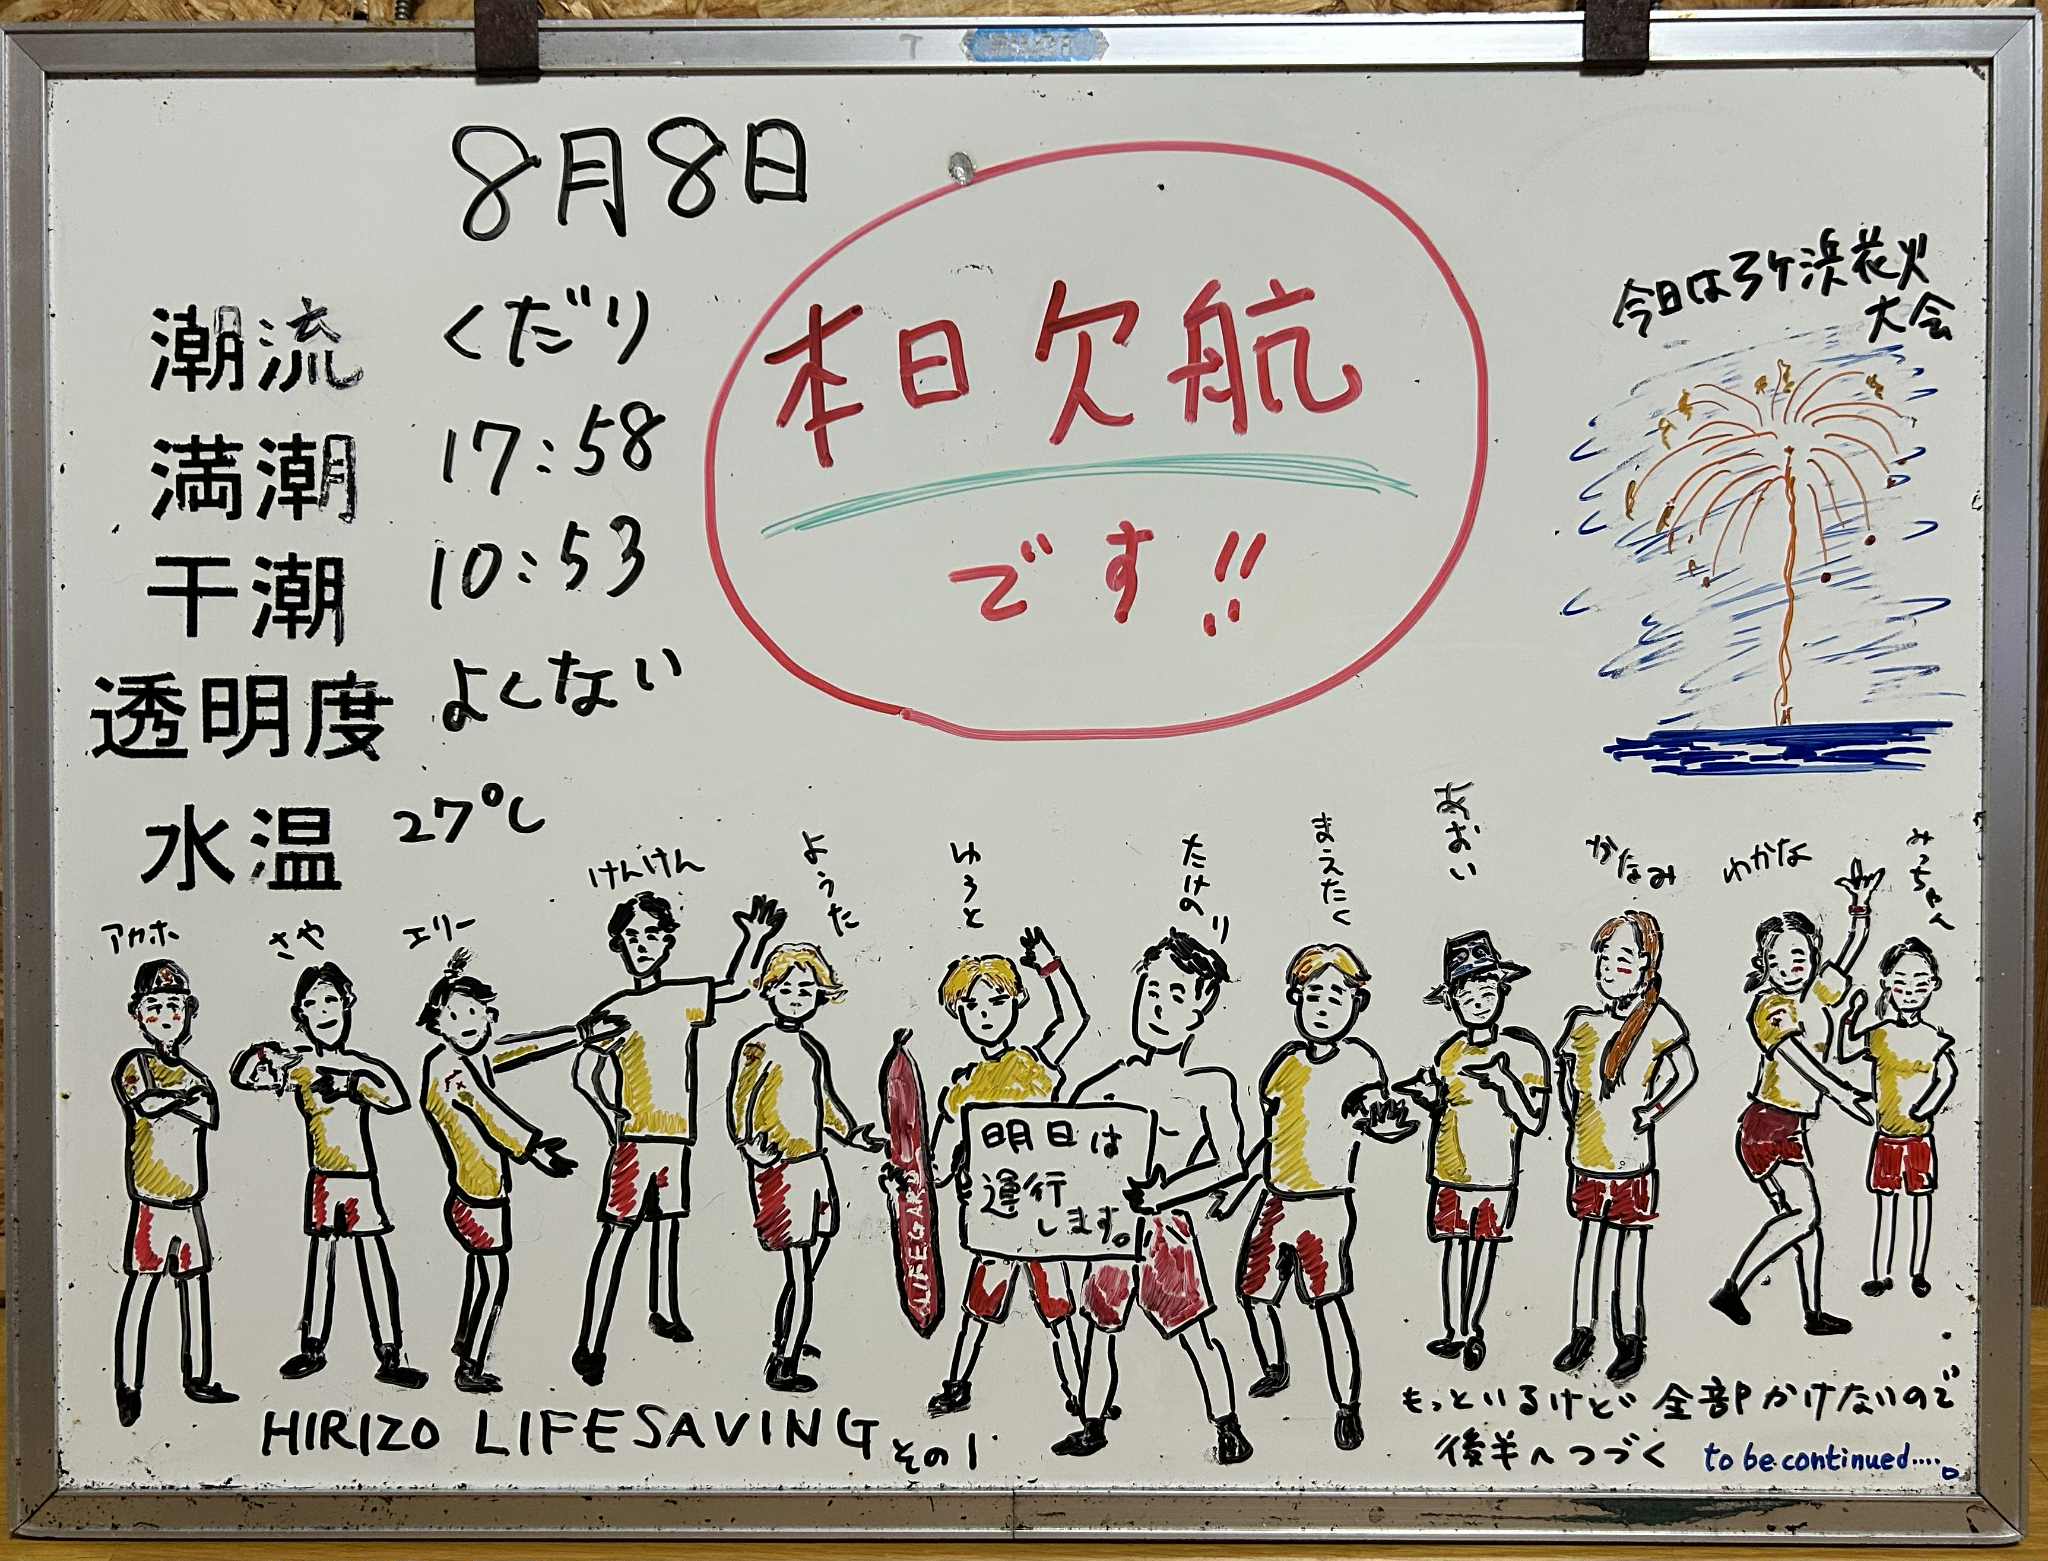 8月8日
潮流 くだり
満潮 17:58
干潮 10:53
透明度 よくない
水温 27℃
本日欠航
です!!
今日は弓ヶ浜花火
大会
アカホ
さや
エリー
けんけん
ようた
ゆうと
たけのり
まえたく
あおい
かなみ
わかな
みっちゃん
LIFEGARD
明日は
運行
します。
HIRIZO LIFESAVING その1
もっといるけど 全部かけないので
後半へつづく to be continued.....